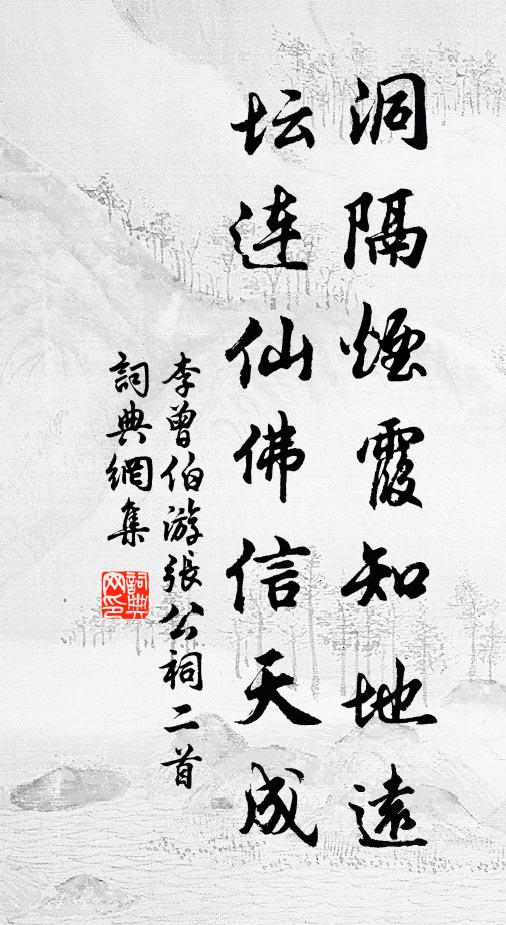 洞隔煙霞知地遠
坛连仙佛信天成
李曾伯游張公祠二首
詞典網集
詞典網印